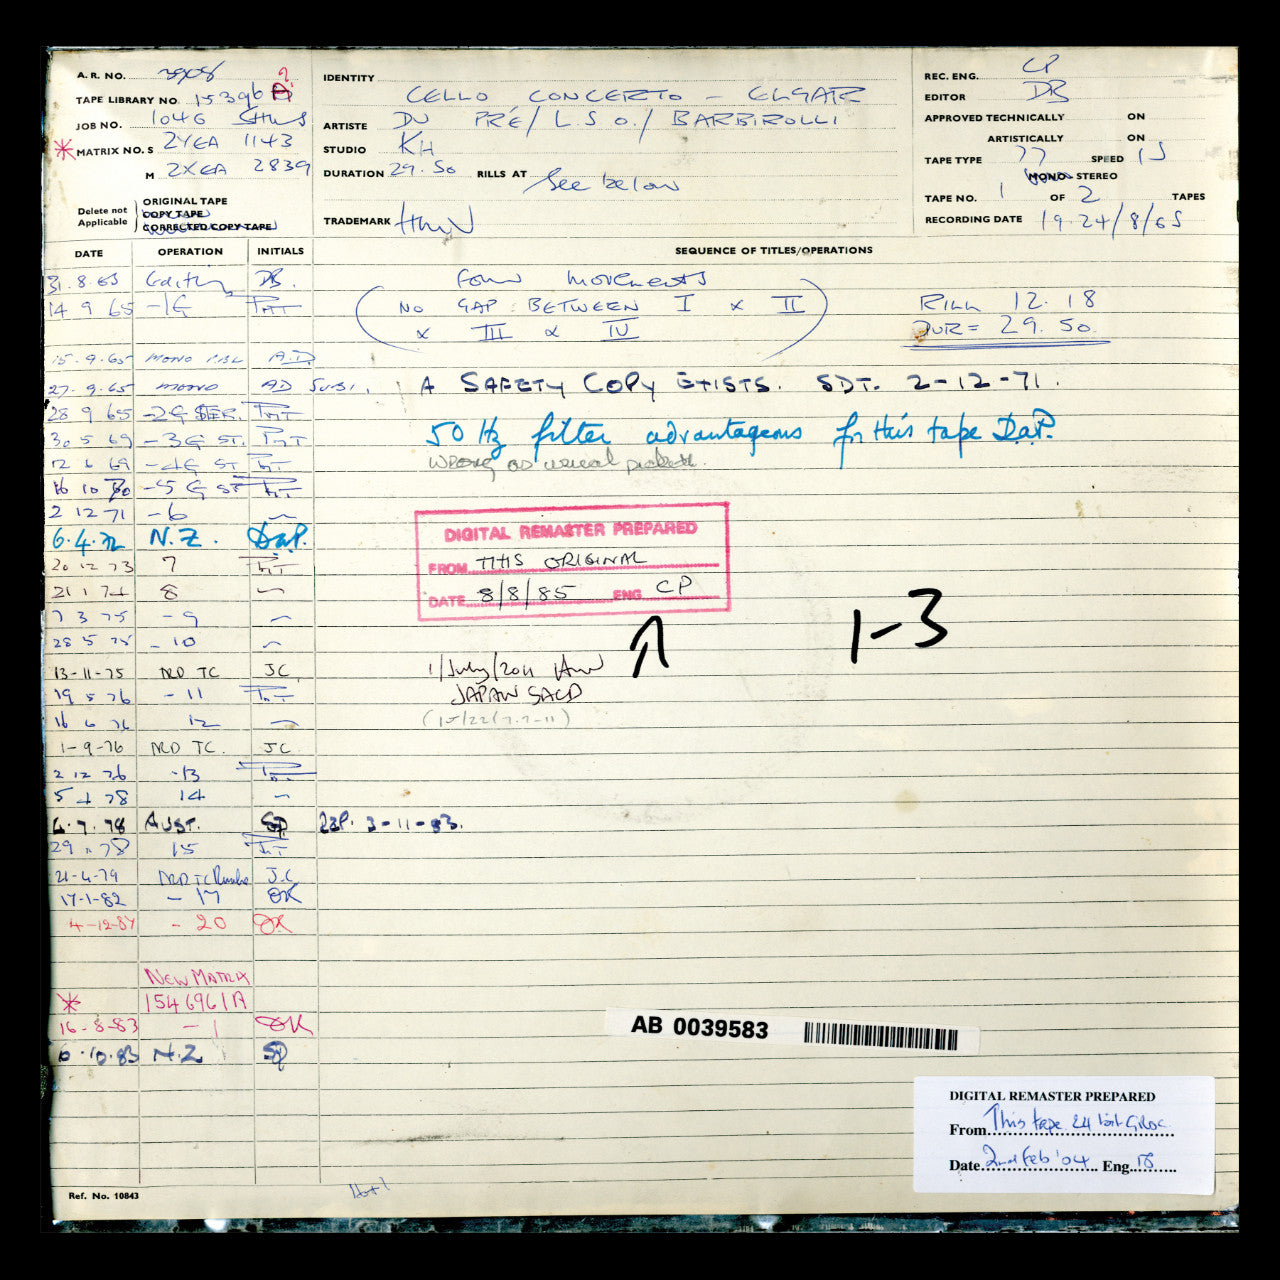 A.R. NO. 3908
TAPE LIBRARY NO 15396
JOB NO. 1046
MATRIX NO. S 2YEA 1143
M 2XEA 2839
Delete not Applicable
ORIGINAL TAPE
COPY TAPE
CORRECTED COPY TAPE
IDENTITY CELLO CONCERTO – ELGAR
ARTISTE DU PRÉ / L.S.O. / BARBIROLLI
STUDIO KH
DURATION 29.50 RILLS AT See below
TRADEMARK HMV
REC. ENG. CP
EDITOR DB
APPROVED TECHNICALLY ON
ARTISTICALLY ON
TAPE TYPE 77 SPEED 15
MONO STEREO
TAPE NO. 1 OF 2 TAPES
RECORDING DATE 19-24/8/65
DATE OPERATION INITIALS SEQUENCE OF TITLES/OPERATIONS
31.8.65 Editing DB. Four Movements
14 9 65 -1G (NO GAP BETWEEN I & II RILL 12.18
& III & IV) DUR = 29.50.
15.9.65 MONO A.D.
27.9.65 MONO AD SUBS. A SAFETY COPY EXISTS. SDT. 2-12-71.
28 9 65 -2G
30 5 69 -3G ST. 50 Hz filter advantageous for this tape D.a.P.
12 6 69 -4G ST
16 10 70 -5G ST
2 12 71 -6
6.4.72 N.Z. D.a.P. DIGITAL REMASTER PREPARED
20 12 73 7 FROM THIS ORIGINAL
21 1 74 8 DATE 8/8/85 ENG CP
7 3 75 -9
28 5 75 -10 1-3
13-11-75 NRD TC JC 1/July/2011
19 5 76 -11 JAPAN SACD
16 6 76 12
1-9-76 NRD TC. JC
2 12 76 -13
5 4 78 14
6.7.78 AUST. SP RSP. 3-11-83.
29 11 78 15
21-4-79 NRD TC J.C
17-1-82 -17 OK
4-12-84 -20 OK
NEW MATRIX
1546961A
16-8-83 -1 OK
6.10.83 N.Z SP
AB 0039583
DIGITAL REMASTER PREPARED
From This tape 24 bit GROC
Date 2nd Feb '04 Eng.
Ref. No. 10843